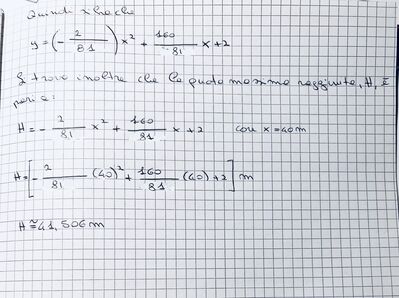 Quindi si ha che
y = (- 2/81) x² + 160/81 x + 2
Si trova inoltre che la quota massima raggiunta, H, è
pari a:
H = - 2/81 x² + 160/81 x + 2 con x = 40 m
H = [- 2/81 (40)² + 160/81 (40) + 2] m
H ≅ 41,506 m